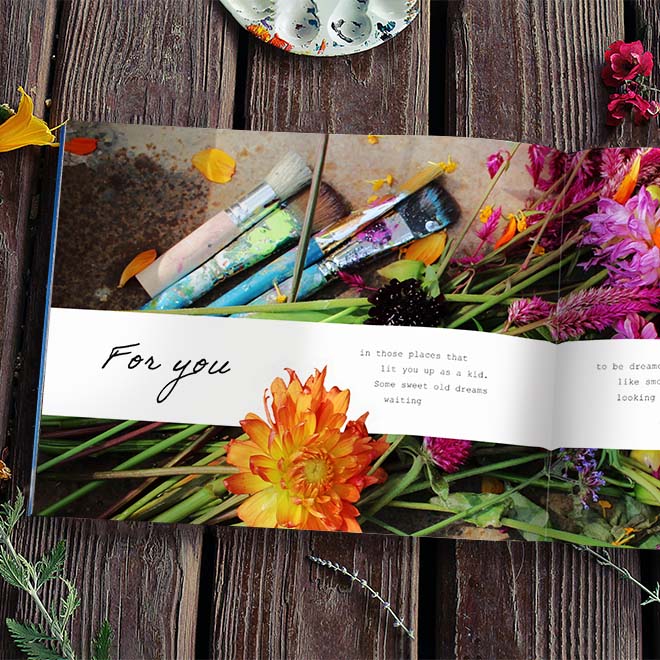 For you
in those places that
lit you up as a kid.
Some sweet old dreams
waiting
to be
like
looking